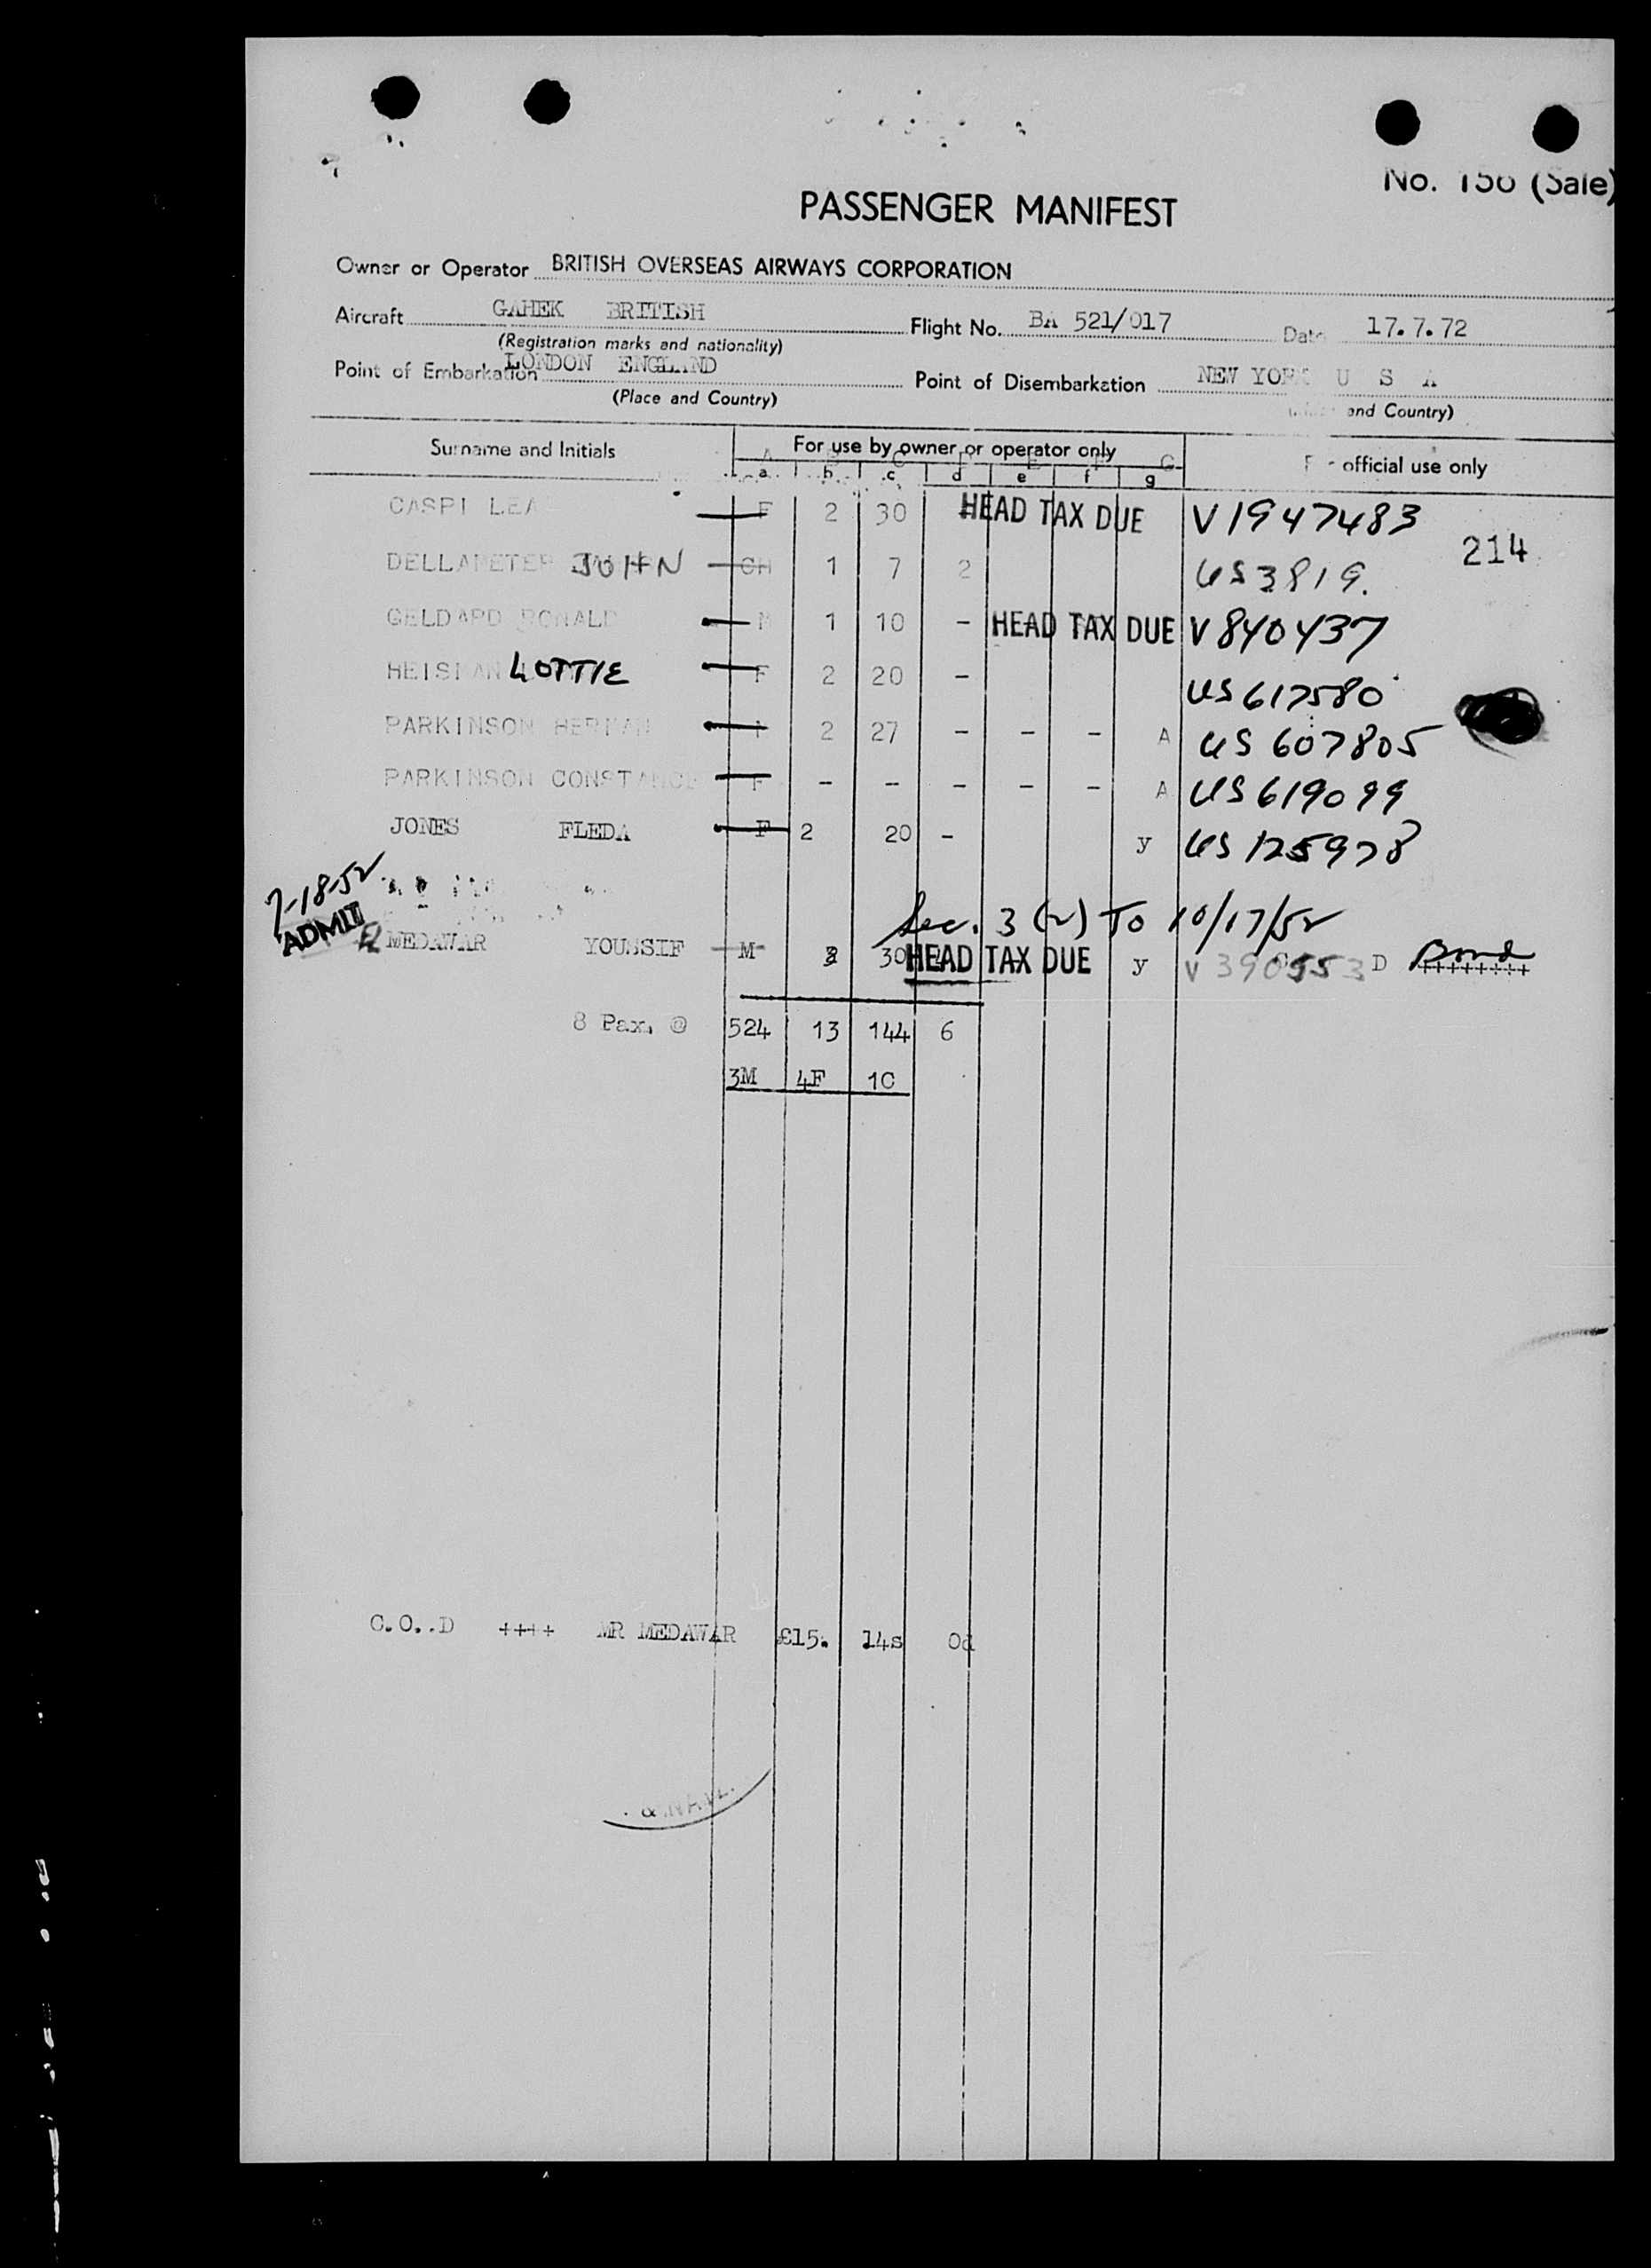 No. 156 (Sale)
PASSENGER MANIFEST
Owner or Operator BRITISH OVERSEAS AIRWAYS CORPORATION
Aircraft GAHEK BRITISH Flight No. BA 521/017 Date 17.7.72
(Registration marks and nationality)
Point of Embarkation LONDON ENGLAND Point of Disembarkation NEW YORK U S A
(Place and Country) and Country)
Surname and Initials For use by owner or operator only official use only
a b c d e f g
CASPI LEA F 2 30 HEAD TAX DUE V1947483
214
DELLAMETER JOHN CH 1 7 2 US3819.
GELDARD RONALD M 1 10 - HEAD TAX DUE V840437
HEISMAN LOTTIE F 2 20 - US617580
PARKINSON HERMAN 2 27 - - - A US 607805
PARKINSON CONSTANCE F - - - - - A US619099
JONES FLEDA F 2 20 - y US125978
7-18-52
ADMIT
Sec. 3 (2) TO 10/17/52
MEDAWAR YOUSSIF M 2 30 HEAD TAX DUE y V390553 D Bond
++++++++
8 Pax. @ 524 13 144 6
3M 4F 1C
C.O..D ++++ MR MEDAWAR £15. 14s 0d